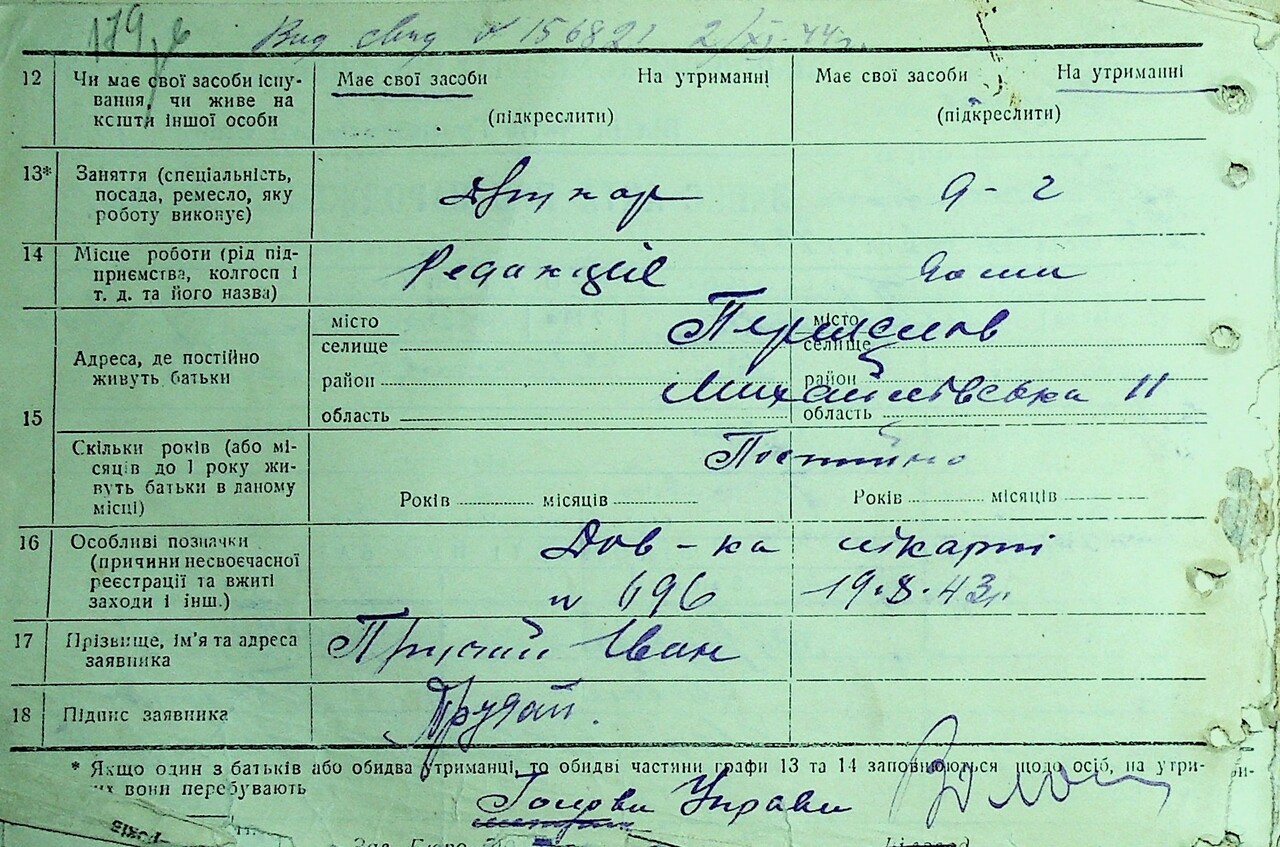 179
Вид свид № 156821 2/XI-44г.
12 Чи має свої засоби існування, чи живе на кошти іншої особи
Має свої засоби На утриманні
(підкреслити)
Має свої засоби На утриманні
(підкреслити)
13* Заняття (спеціальність,
посада, ремесло, яку
роботу виконує)
14 Місце роботи (рід під-
приємства, колгосп і
т. д. та його назва)
Редакціє
15 Адреса, де постійно
живуть батьки
місто
селище
район
область
місто
селище
район
область
Михайлівська 11
Скільки років (або мі-
сяців до 1 року жи-
вуть батьки в даному
місці)
Постійно
Років місяців
Років місяців
16 Особливі позначки
(причини несвоєчасної
реєстрації та вжиті
заходи і інш.)
Дов-ка лікарні
№ 696 19.8.43г.
17 Прізвище, ім'я та адреса
заявника
Іван
18 Підпис заявника
* Якщо один з батьків або обидва утриманці, то обидві частини графи 13 та 14 заповнюються щодо осіб, на утри-
вони перебувають
Голови Управи